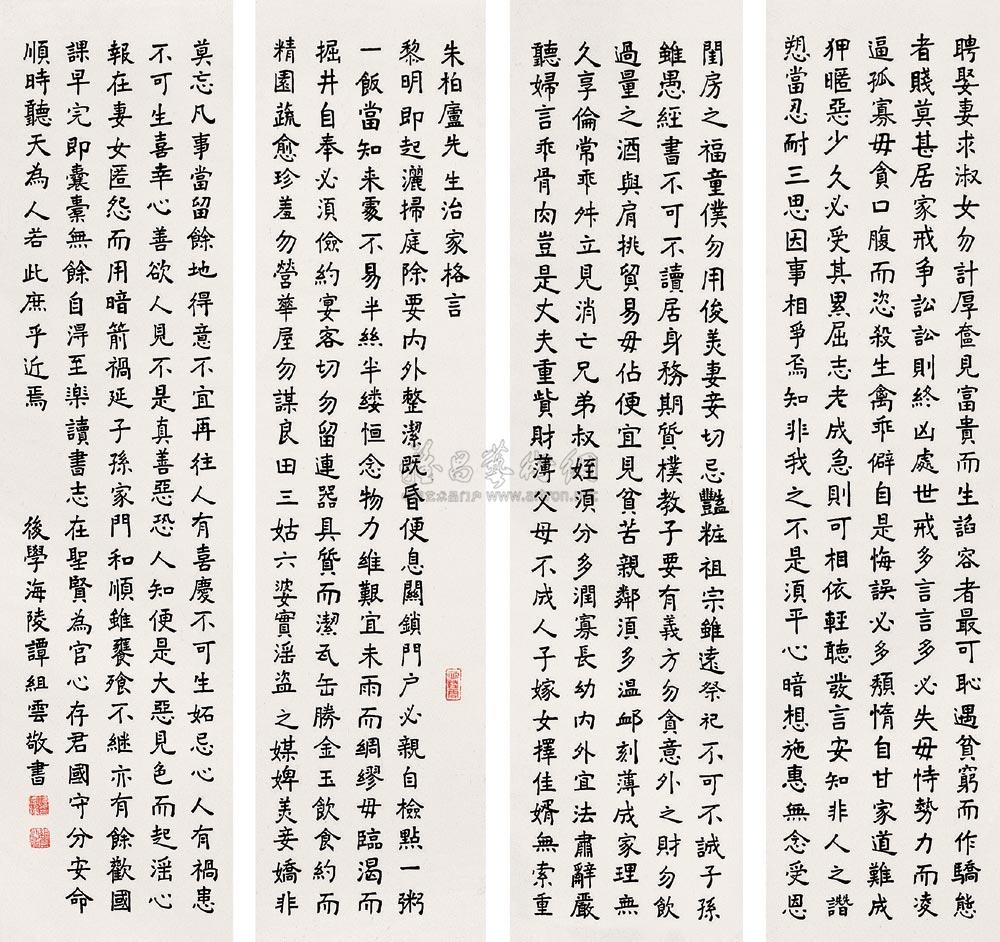 朱柏廬先生治家格言
黎明即起灑掃庭除要内外整潔既昏便息關鎖門户必親自檢點一粥
一飯當知来處不易半絲半縷恒念物力維艱宜未雨而綢繆毋臨渴而
掘井自奉必須儉約宴客切勿留連器具質而潔瓦缶勝金玉飲食約而
精園蔬愈珍羞勿營華屋勿謀良田三姑六婆實淫盗之媒婢美妾嬌非
閨房之福童僕勿用俊美妻妾切忌豔粧祖宗雖遠祭祀不可不誠子孫
雖愚經書不可不讀居身務期質樸教子要有義方勿貪意外之財勿飲
過量之酒與肩挑貿易毋佔便宜見貧苦親鄰須多温卹刻薄成家理無
久享倫常乖舛立見消亡兄弟叔姪須分多潤寡長幼内外宜法肅辭嚴
聽婦言乖骨肉豈是丈夫重貲財薄父母不成人子嫁女擇佳婿無索重
聘娶妻求淑女勿計厚奩見富貴而生諂容者最可恥遇貧窮而作驕態
者賤莫甚居家戒争訟訟則終凶處世戒多言言多必失毋恃勢力而凌
逼孤寡毋貪口腹而恣殺生禽乖僻自是悔誤必多頹惰自甘家道難成
狎暱惡少久必受其累屈志老成急則可相依輕聽發言安知非人之譖
愬當忍耐三思因事相爭焉知非我之不是須平心暗想施惠無念受恩
莫忘凡事當留餘地得意不宜再往人有喜慶不可生妬忌心人有禍患
不可生喜幸心善欲人見不是真善惡恐人知便是大惡見色而起淫心
報在妻女匿怨而用暗箭禍延子孫家門和順雖饔飧不継亦有餘歡國
課早完即囊橐無餘自得至樂讀書志在聖賢為官心存君國守分安命
順時聽天為人若此庶乎近焉
後學海陵譚組雲敬書
雅昌藝術網
中国艺术品门户 www.artron.net